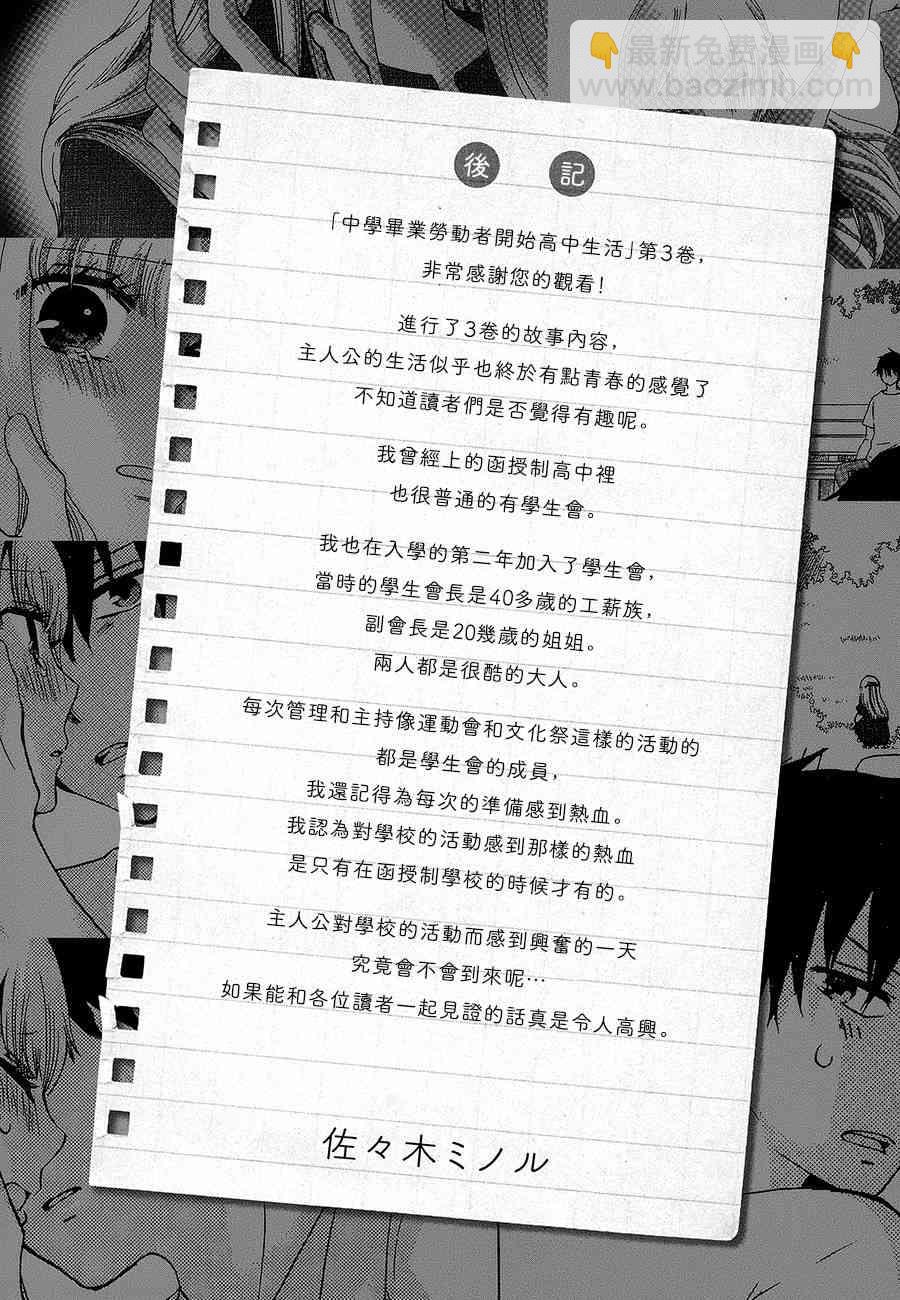 最新免费漫画
www.baozimh.com
後記
「中學畢業勞動者開始高中生活」第3卷，
非常感謝您的觀看！
進行了3卷的故事內容，
主人公的生活似乎也終於有點青春的感覺了
不知道讀者們是否覺得有趣呢。
我曾經上的函授制高中裡
也很普通的有學生會。
我也在入學的第二年加入了學生會，
當時的學生會長是40多歲的工薪族，
副會長是20幾歲的姐姐。
兩人都是很酷的大人。
每次管理和主持像運動會和文化祭這樣的活動的
都是學生會的成員，
我還記得為每次的準備感到熱血。
我認為對學校的活動感到那樣的熱血
是只有在函授制學校的時候才有的。
主人公對學校的活動而感到興奮的一天
究竟會不會到來呢…
如果能和各位讀者一起見證的話真是令人高興。
佐々木ミノル